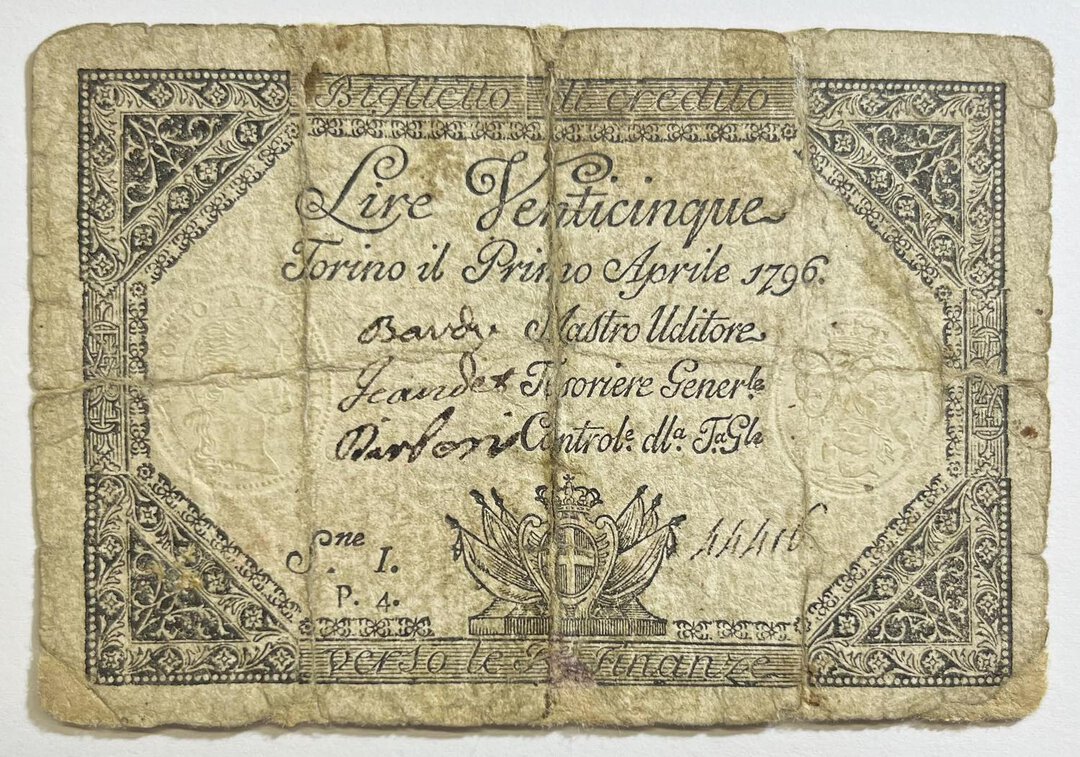 Biglietto di credito
Lire Venticinque
Torino il Primo Aprile 1796.
Mastro Uditore
Tesoriere Gener.le
Controle. dll.a T.a Gle
S.ne I.
P. 4.
verso le R. Finanze